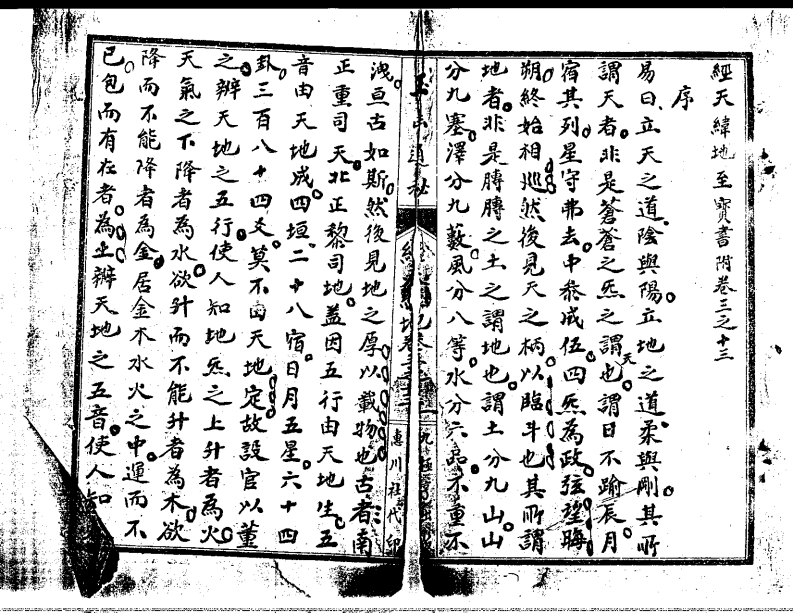 經天緯地至寶書附卷三之十三
序
易曰立天之道陰與陽立地之道柔與剛其所
謂天者非是蒼蒼之炁之謂天也謂日不踰辰月
宿其列星守弗去中叅成伍四炁為政弦望晦
朔終始相巡然後見天之柄以臨斗也其所謂
地者非是膞膞之土之謂地也謂土分九山山
分九塞澤分九藪風分八等水分六品不重不
洩亘古如斯然後見地之厚以載物也古者南
正重司天北正黎司地蓋因五行由天地生五
音由天地成四垣二十八宿日月五星六十四
卦三百八十四爻莫不由天地定故設官以董
之辨天地之五行使人知地炁之上升者為火
天氣之下降者為水欲升而不能升者為木欲
降而不能降者為金居金木水火之中運而不
已包而有在者為土辨天地之五音使人知
惠川社代印